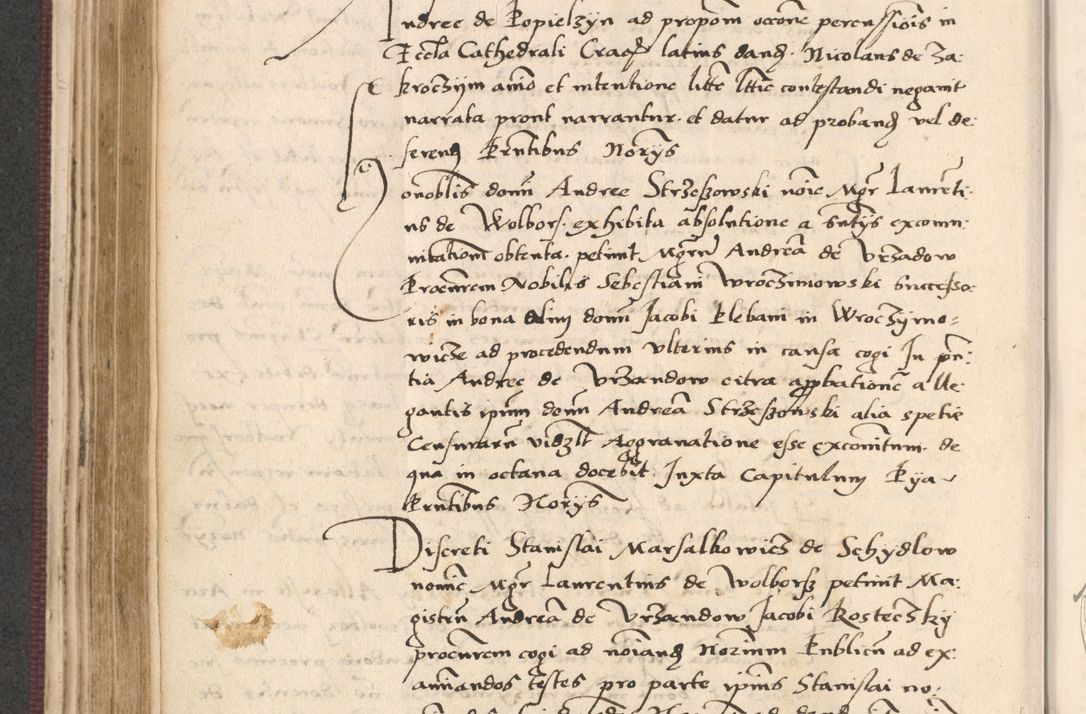 Andree de Kopielzyn ad propom occone percussiois in
Eccla Cathedrali Cracq latius dand. Nicolaus de Za:
kroczym animo et intentione litte lttic contestandi negavit
narrata prout narrantur. et datur ad proband vel de:
ferend Prntibus Norys
Honoblis domi Andree Strzeszowski noie Mgr Laureti:
us de Wolbors. exhibita absolutione a sntys excom:
nicationi obtenta. petiuit Mgrm Andrea de Vrzadow
Procurem Nobilis Sebestiani Wroczimowski successo:
ris in bona olim domi Jacobi Plebani in Wroczymo=
wicze ad procedendum vlterius in causa cogi In pn:
tia Andree de Vrzandow citra approbatione alle:
gantis ipum domi Andrea Strzeszowski alia spetie
Censurarum vidzlt Aggravatione esse excoicatum. de
qua in octava docebit. Juxta Capitulum Kya
Prntibus Norys
Discreti Stanislai Marsalkowicz de Schydlow
nomie Mgr Laurentius de Wolborsz petiuit Ma:
gistru Andrea de Vrzandow Jacobi Kosteczky
procurem cogi ad noiand Norium Publicu ad ex:
aminandos testes pro parte ipius Stanislai no: